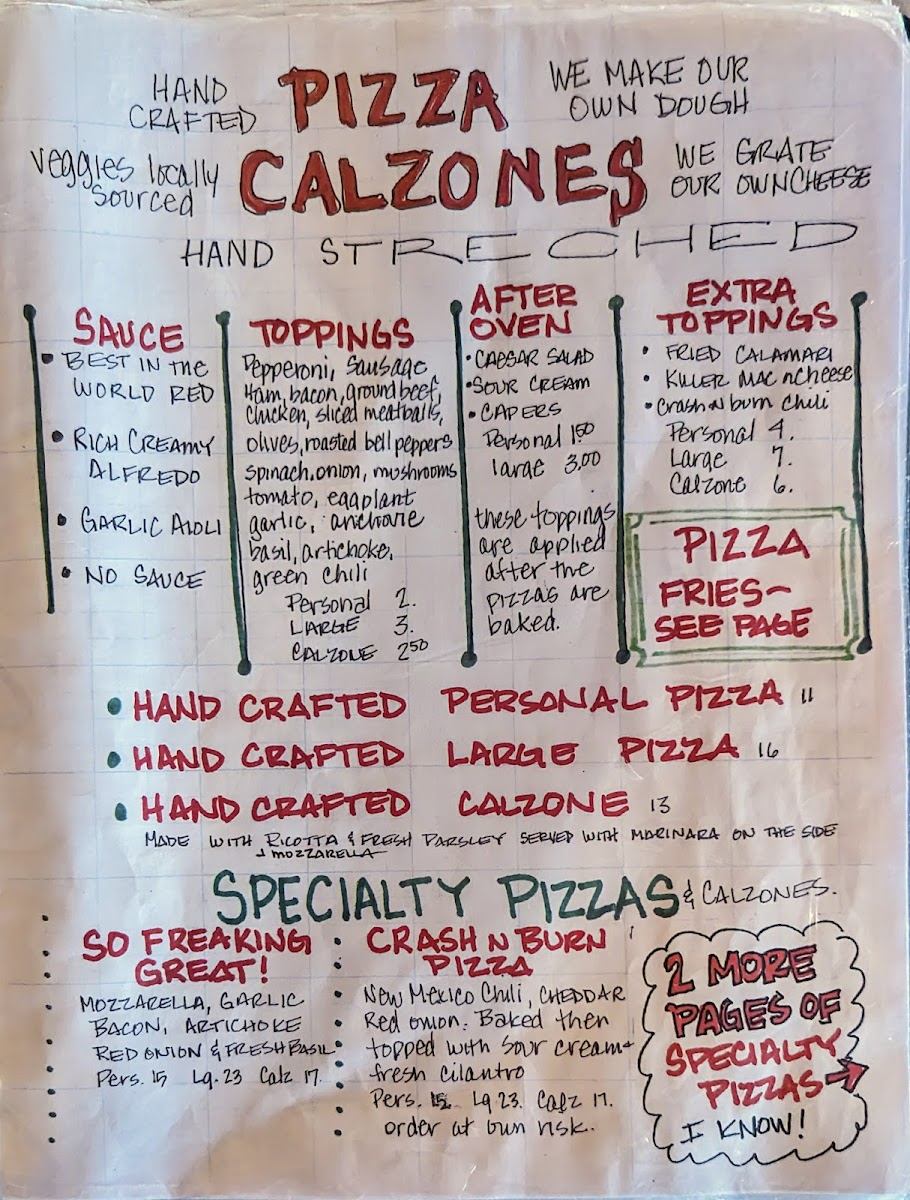 HAND
CRAFTED
PIZZA
WE MAKE OUR
OWN DOUGH
Veggies locally
sourced
CALZONES
WE GRATE
OUR OWN CHEESE
HAND STRECHED
SAUCE
• BEST IN the
WORLD RED
• RICH CREAMY
ALFREDO
• GARLIC AIOLI
• NO SAUCE
TOPPINGS
Pepperoni, Sausage
Ham, bacon, ground beef,
chicken, sliced meatballs,
olives, roasted bell peppers
spinach, onion, mushrooms
tomato, eggplant
garlic, anchovie
basil, artichoke,
green chili
Personal 2.
LARGE 3.
CALZONE 2.50
AFTER
OVEN
• CAESAR SALAD
• SOUR CREAM
• CAPERS
Personal 1.50
large 3.00
these toppings
are applied
after the
pizza's are
baked.
EXTRA
TOPPINGS
• FRIED CALAMARI
• KILLER MAC n cheese
• Crash n burn chili
Personal 4.
Large 7.
Calzone 6.
PIZZA
FRIES~
SEE PAGE
• HAND CRAFTED PERSONAL PIZZA 11
• HAND CRAFTED LARGE PIZZA 16
• HAND CRAFTED CALZONE 13
MADE WITH RICOTTA & FRESH PARSLEY SERVED WITH MARINARA ON THE SIDE
+ MOZZARELLA
SPECIALTY PIZZAS & CALZONES.
SO FREAKING
GREAT!
MOZZARELLA, GARLIC
BACON, ARTICHOKE
RED ONION & FRESH BASIL
Pers. 15 Lg. 23 Calz 17.
CRASH N BURN
PIZZA
New Mexico Chili, CHEDDAR
Red onion. Baked then
topped with sour cream +
fresh cilantro
Pers. 15 Lg 23. Calz 17.
order at own risk.
2 MORE
PAGES OF
SPECIALTY
PIZZAS →
I KNOW!